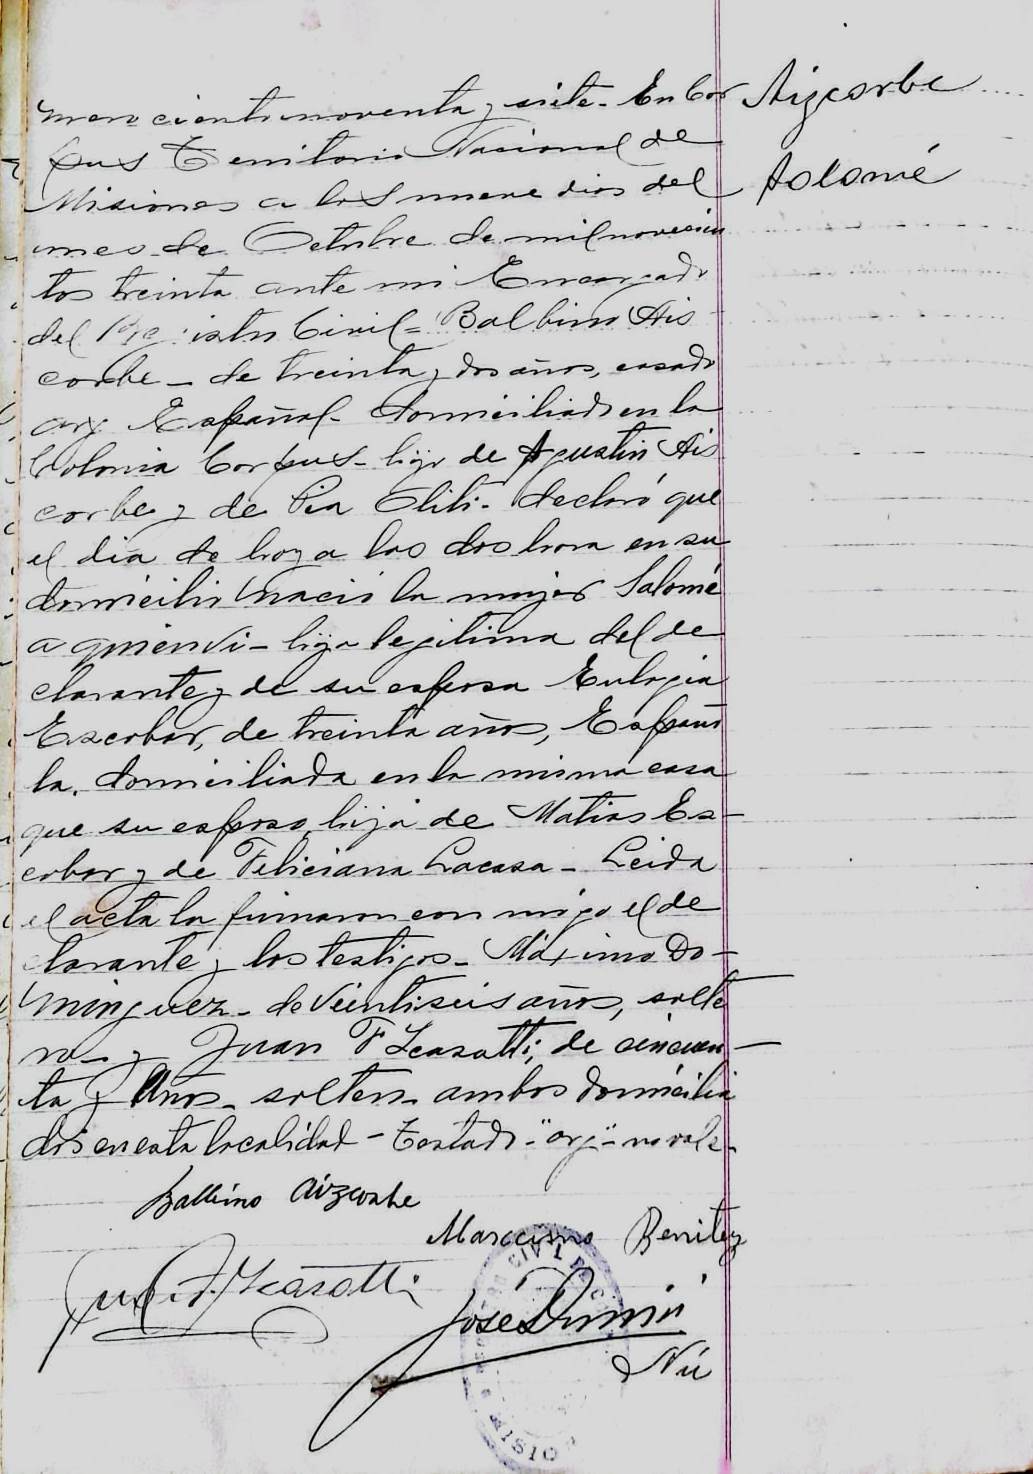 mero ciento noventa y siete. En Cor
Aizcorbe
pus Territorio Nacional de
Misiones a los nueve dias del
Salomé
mes de Octubre de mil novecien
tos treinta ante mi Encargado
del Registro Civil = Balbino Ais
corbe - de treinta y dos años, casado
arg. Español - domiciliado en la
Colonia Corpus - hijo de Agustin Ais
corbe y de Pia - declaró que
el dia de hoy a las dos hora en su
domicilio nació la mujer Salomé
a quien vi - hija legitima del de
clarante y de su esposa Eulogia
Escobar, de treinta años, Españo
la, domiciliada en la misma casa
que su esposo, hija de Matias Es-
cobar y de Feliciana Lacasa - Leida
el acta la firmaron con migo el de
clarante y los testigos - Máximo Do-
minguez - de veintiseis años, solte
ro - y Juan F Scasotti, de cincuen-
ta y años - soltero - ambos domicilia
dos en esta localidad - Testado - "arg" - no vale -
Balbino Aizcorbe
Benitez
F. Scasotti
José